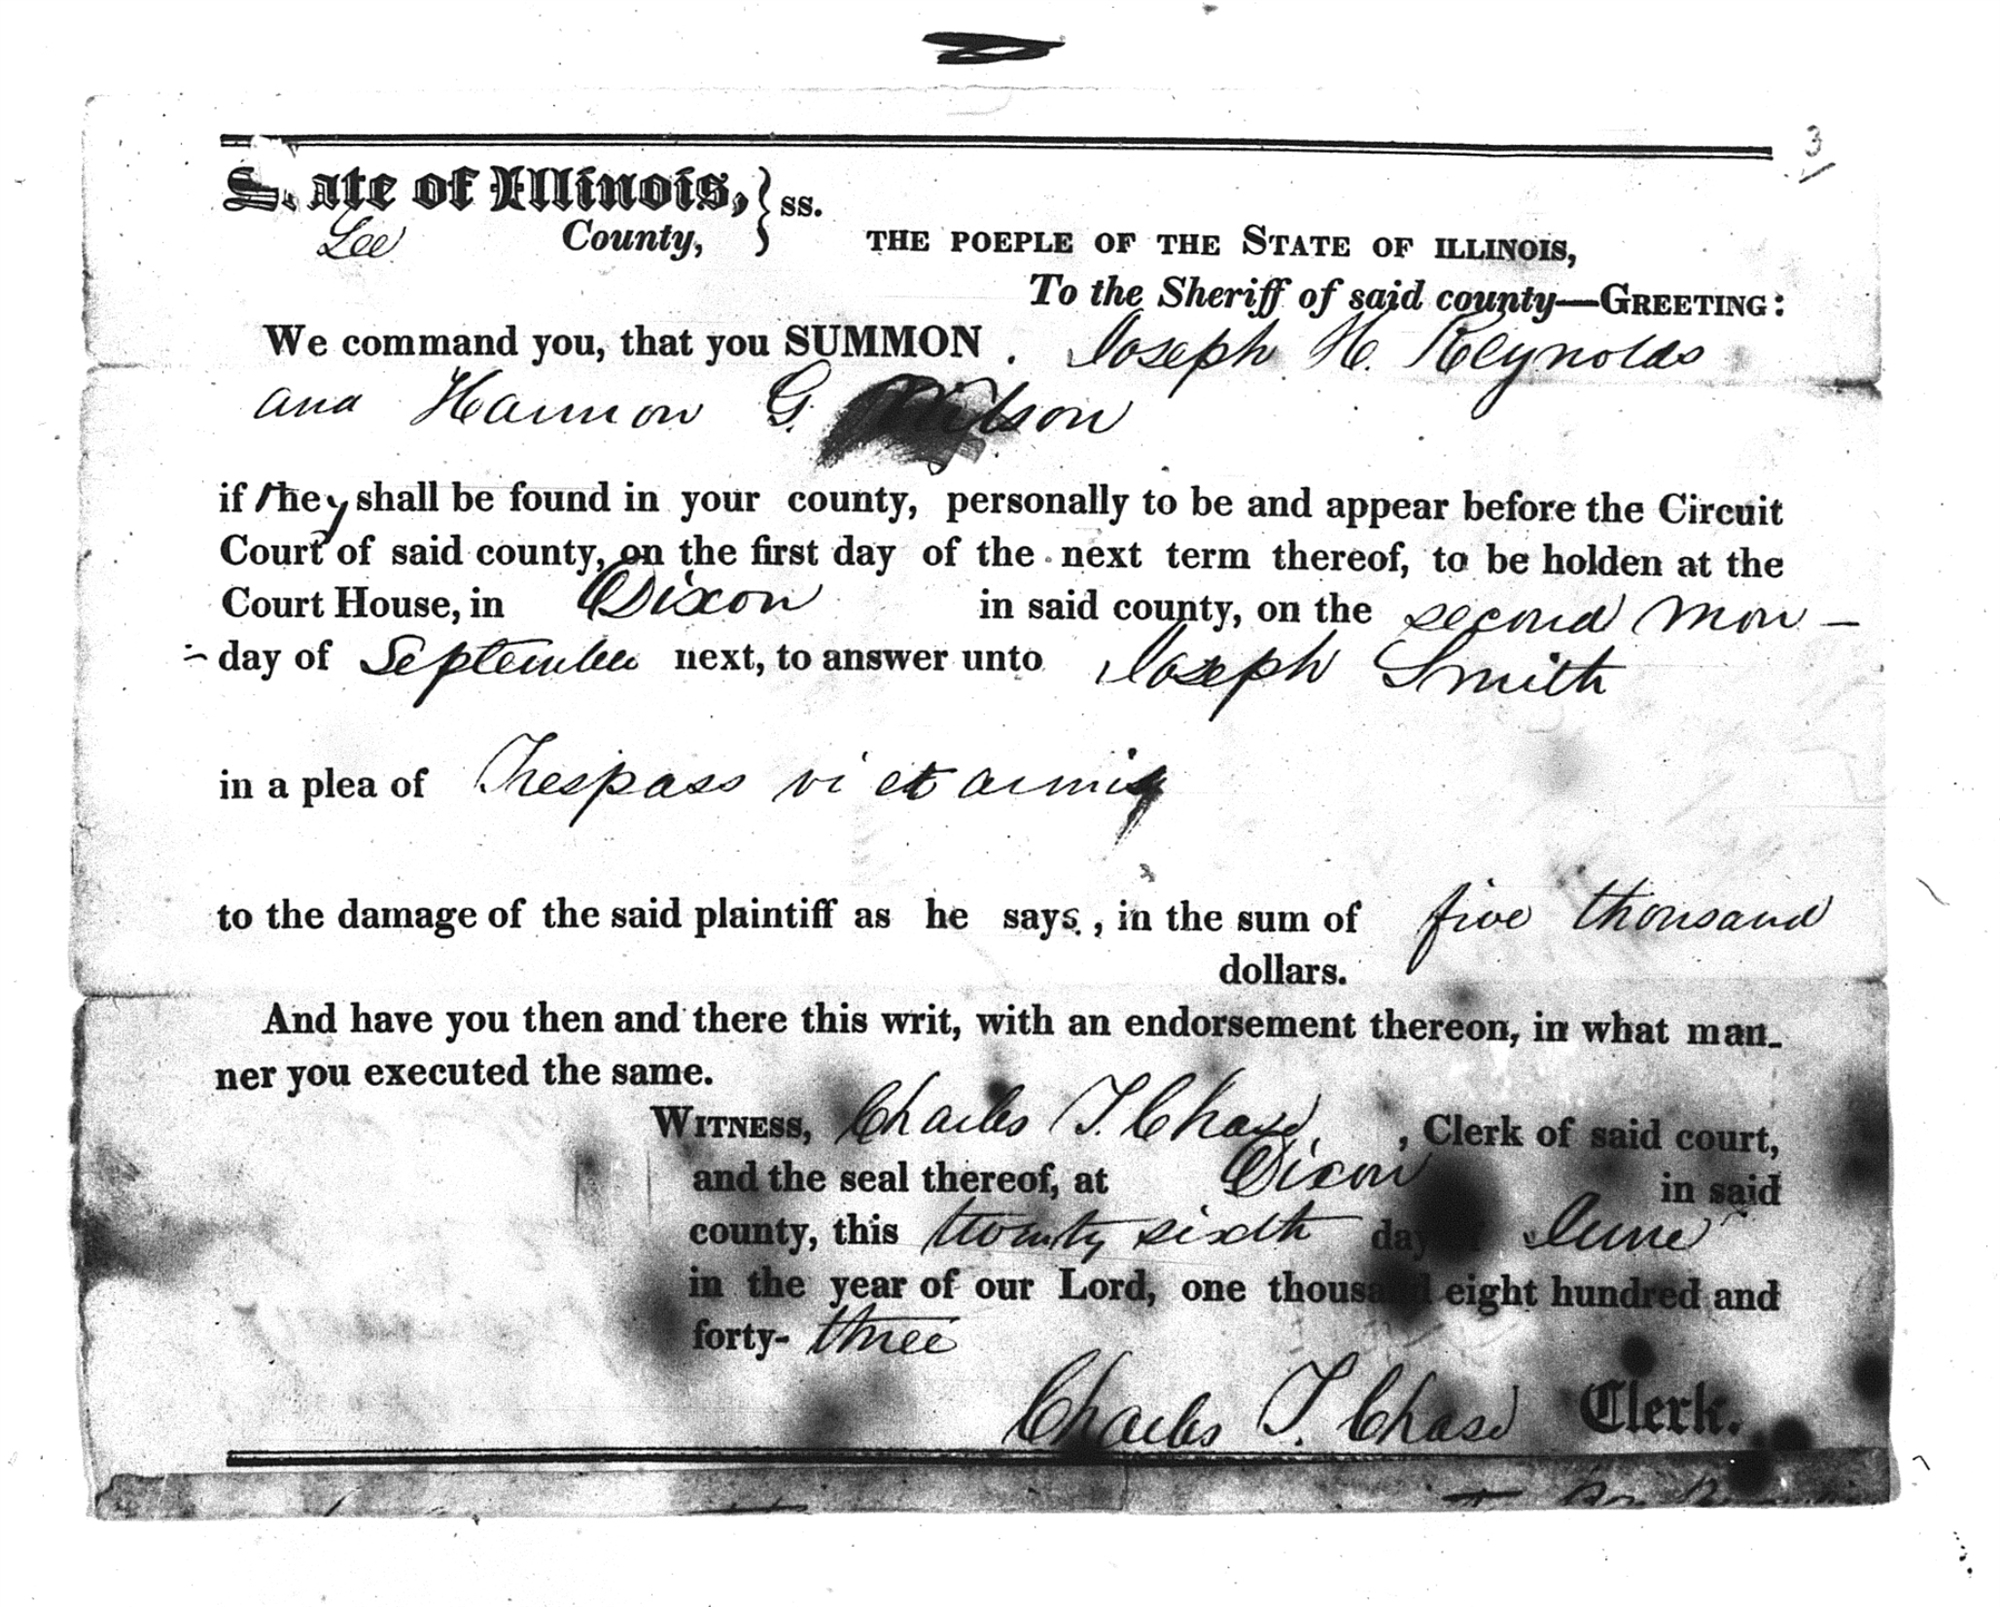 3
State of Illinois, } ss.
Lee County, THE POEPLE OF THE STATE OF ILLINOIS,
To the Sheriff of said county—GREETING:
We command you, that you SUMMON . Joseph H. Reynolds
and Harmon G. Wilson
if they shall be found in your county, personally to be and appear before the Circuit
Court of said county, on the first day of the next term thereof, to be holden at the
Court House, in Dixon in said county, on the second Mon-
-day of September next, to answer unto Joseph Smith
in a plea of Trespass vi et armis
to the damage of the said plaintiff as he says, in the sum of five thousand
dollars.
And have you then and there this writ, with an endorsement thereon, in what man-
ner you executed the same.
WITNESS, Charles T. Chase, , Clerk of said court,
and the seal thereof, at Dixon in said
county, this twenty sixth day of June
in the year of our Lord, one thousand eight hundred and
forty- three
Charles T. Chase Clerk.